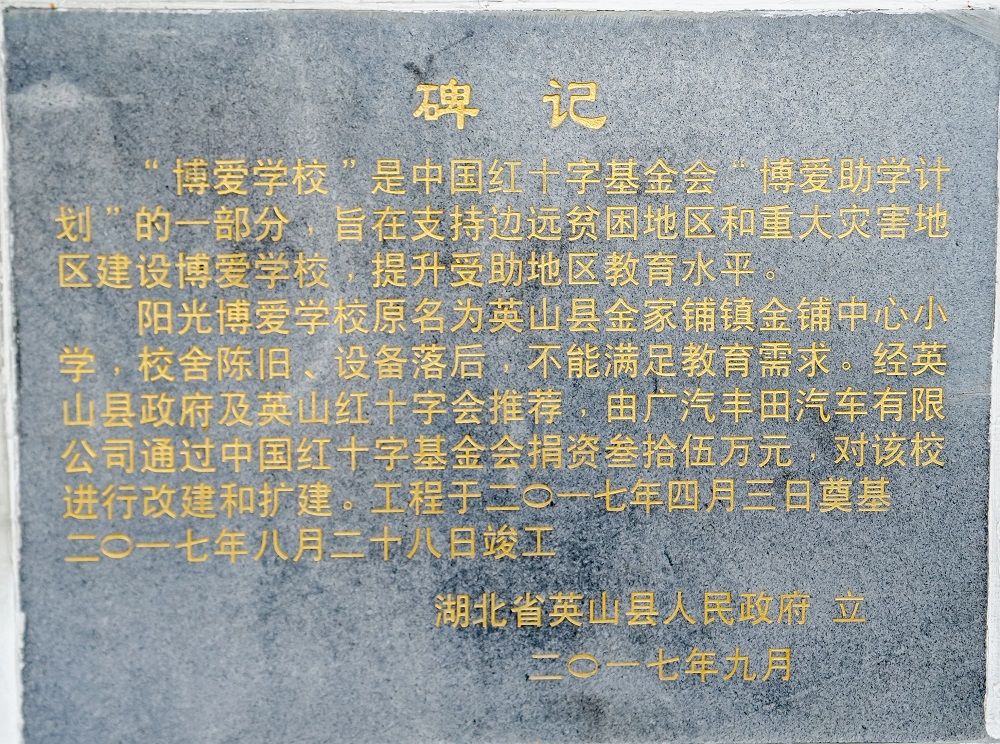 碑 记
“博爱学校”是中国红十字基金会“博爱助学计
划”的一部分，旨在支持边远贫困地区和重大灾害地
区建设博爱学校，提升受助地区教育水平。
阳光博爱学校原名为英山县金家铺镇金铺中心小
学，校舍陈旧、设备落后，不能满足教育需求。经英
山县政府及英山红十字会推荐，由广汽丰田汽车有限
公司通过中国红十字基金会捐资叁拾伍万元，对该校
进行改建和扩建。工程于二〇一七年四月三日奠基
二〇一七年八月二十八日竣工
湖北省英山县人民政府 立
二〇一七年九月